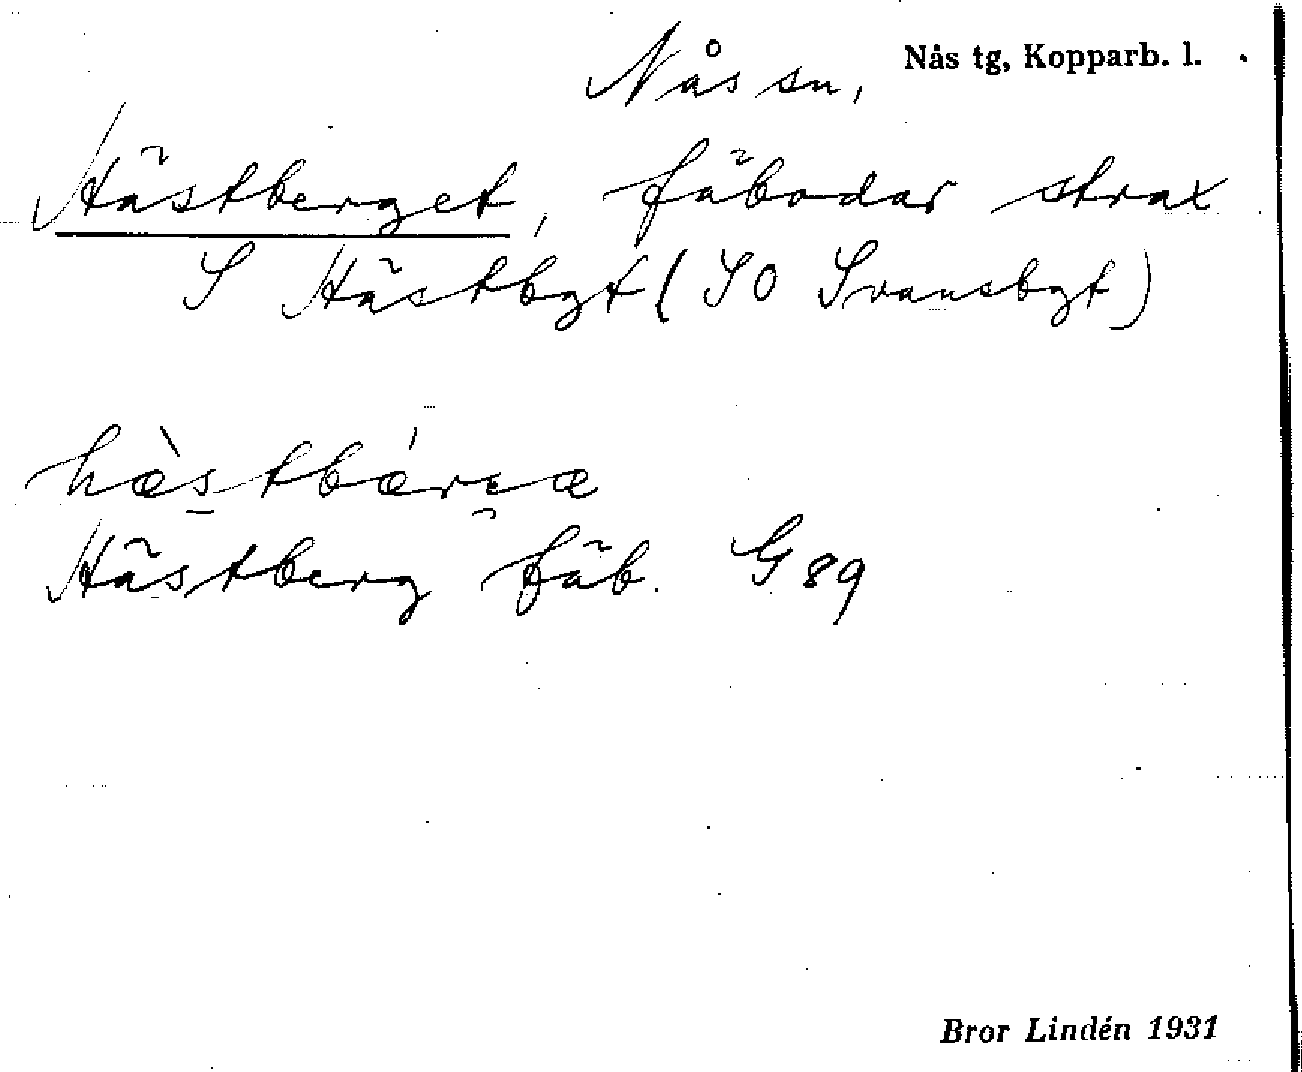 Nås sn, Nås tg, Kopparb. l.
Hästberget, fäbodar strax
S Hästbgt (SO Svansbgt)
hæ̀stbǽrıæ
Hästberg fäb. G 89
Bror Lindén 1931